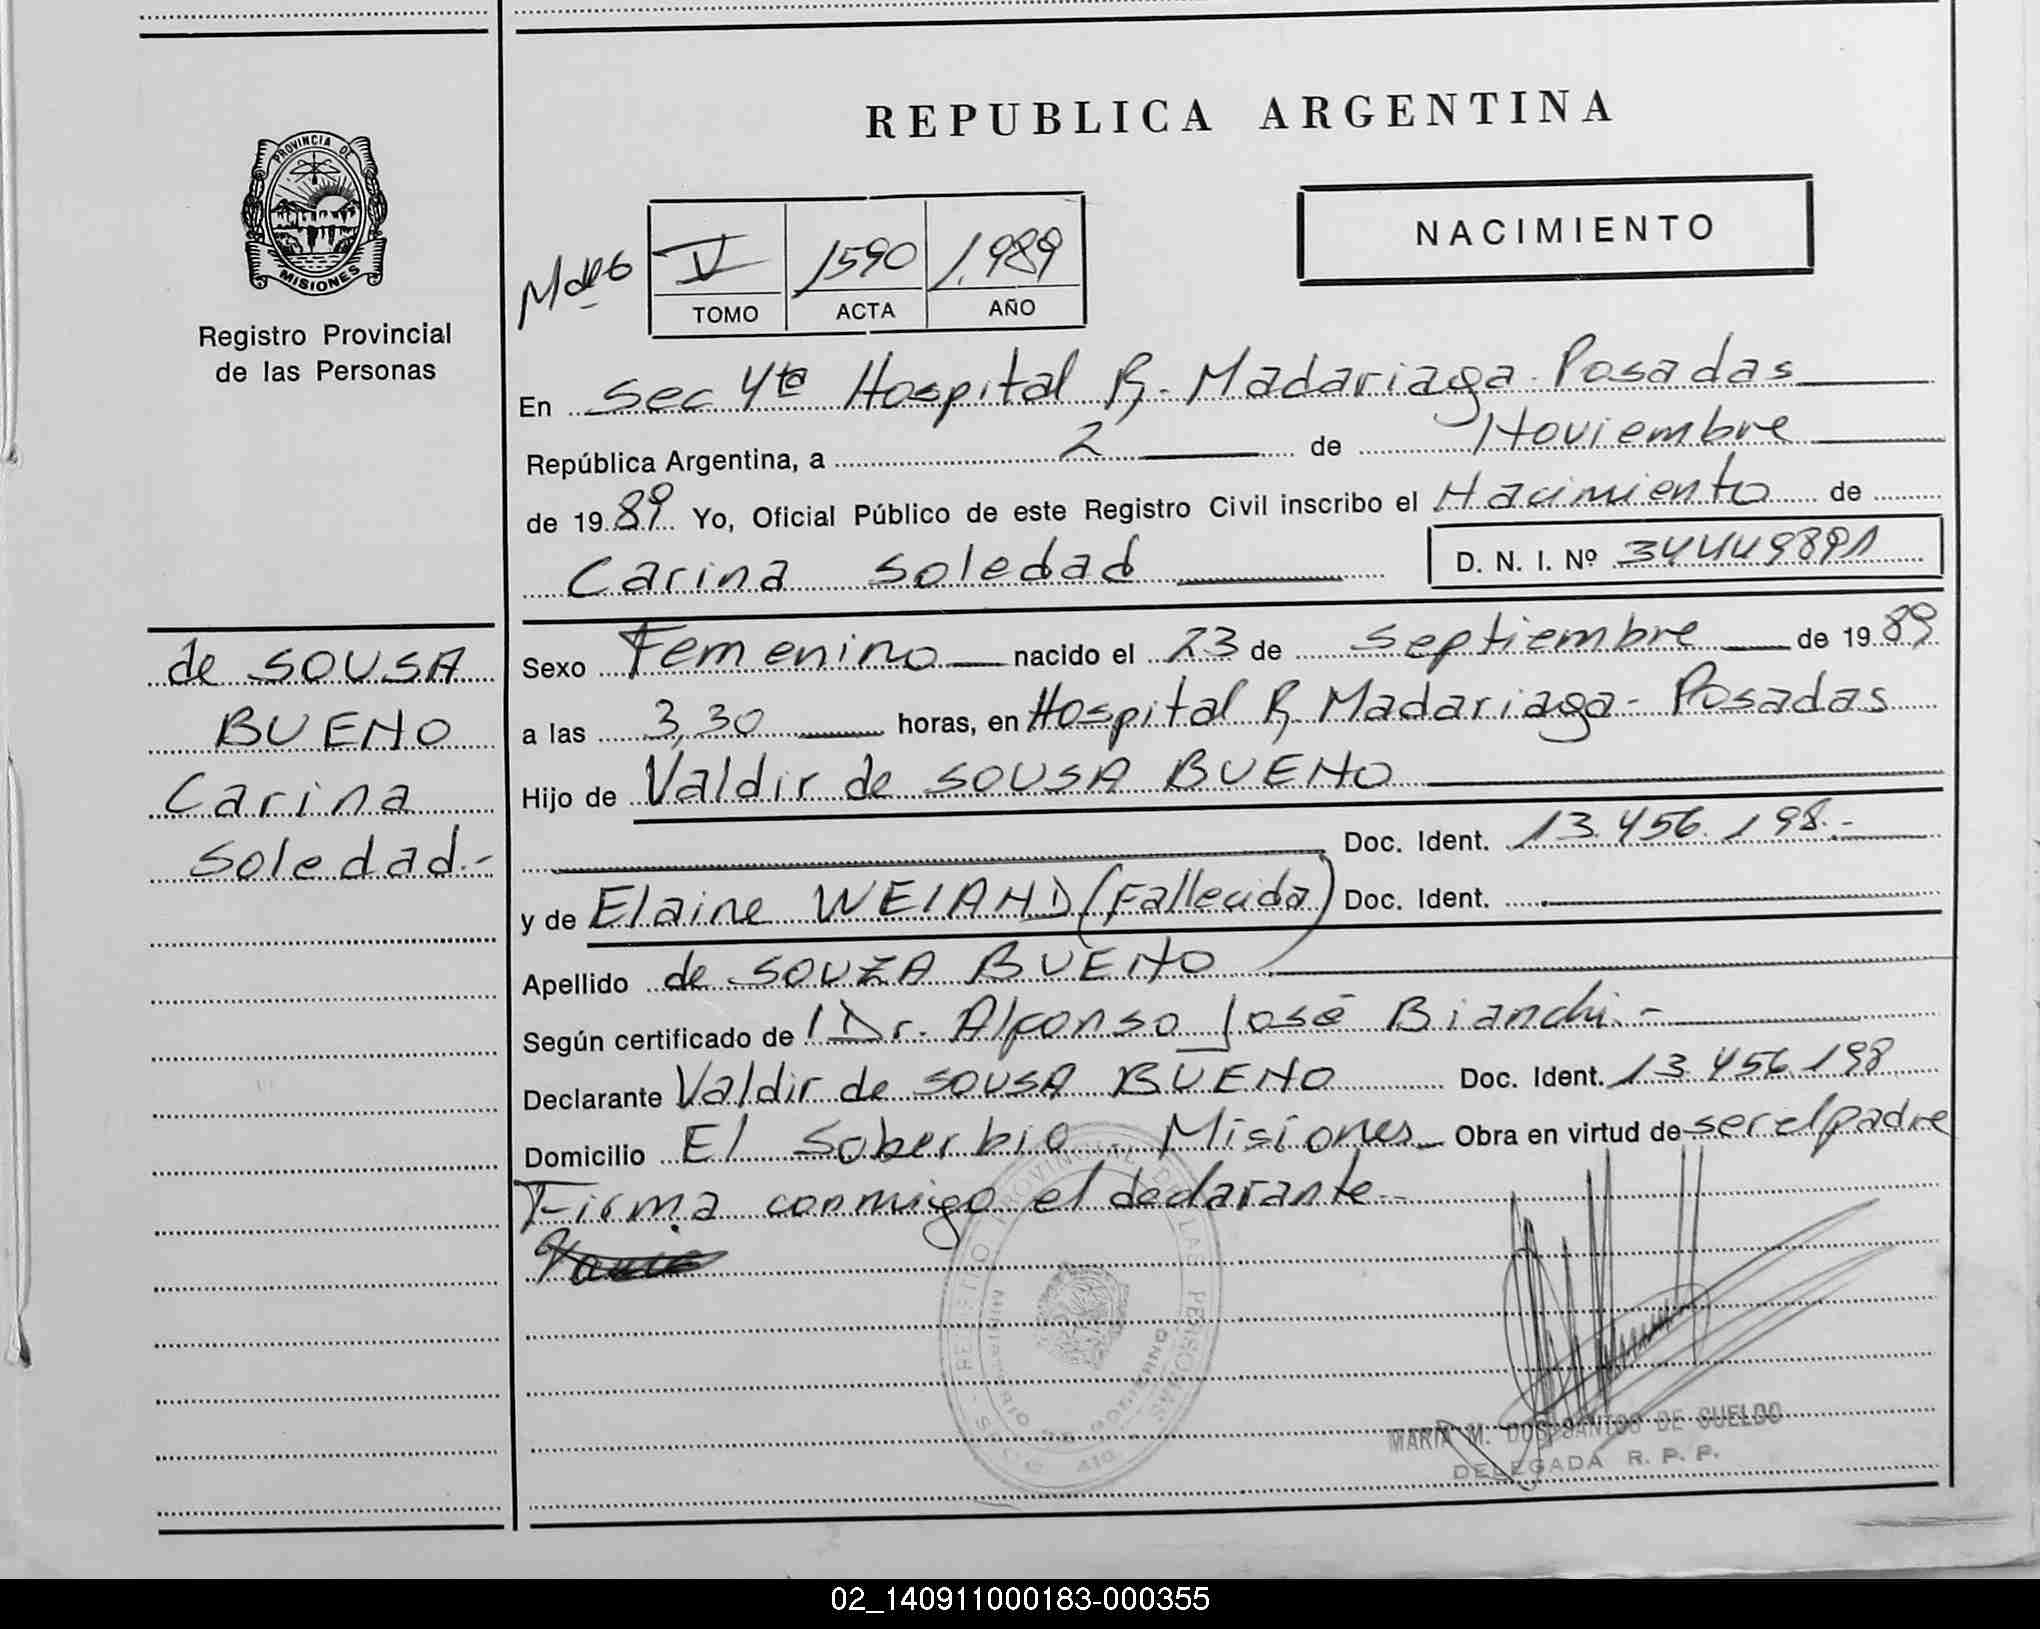 REPUBLICA ARGENTINA
PROVINCIA DE
MISIONES
Registro Provincial
de las Personas
NACIMIENTO
V 1590 1.989
TOMO ACTA AÑO
En Sec 4ta Hospital R. Madariaga - Posadas
República Argentina, a 2 de Noviembre
de 1989 Yo, Oficial Público de este Registro Civil inscribo el Nacimiento de
Carina Soledad D. N. I. Nº 34449891
de SOUSA
BUENO
Carina
Soledad.-
Sexo Femenino nacido el 23 de Septiembre de 1989
a las 3,30 horas, en Hospital R. Madariaga - Posadas
Hijo de Valdir de SOUSA BUENO
Doc. Ident. 13.456.198.-
y de Elaine WEIAND (Fallecida) Doc. Ident.
Apellido de SOUZA BUENO
Según certificado de Dr. Alfonso José Bianchi.-
Declarante Valdir de SOUSA BUENO Doc. Ident. 13.456.198
Domicilio El Soberbio - Misiones Obra en virtud de ser el padre
Firma conmigo el declarante
REGISTRO PROVINCIAL DE LAS PERSONAS
MINISTERIO DE GOBIERNO
MARIA M. DOS SANTOS DE SUELDO
DELEGADA R. P. P.
02_140911000183-000355